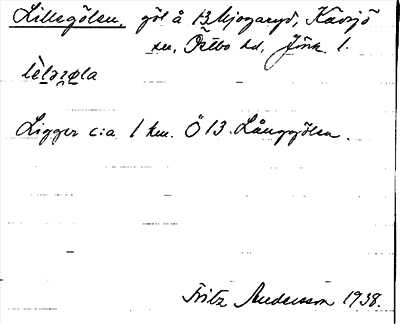 Lillegölen, göl å 13 Mjogaryd, Kävsjö
sn, Östbo hd, Jönk. l.
Ligger c:a 1 km. Ö 13. Långgölen.
Fritz Andersson 1938.